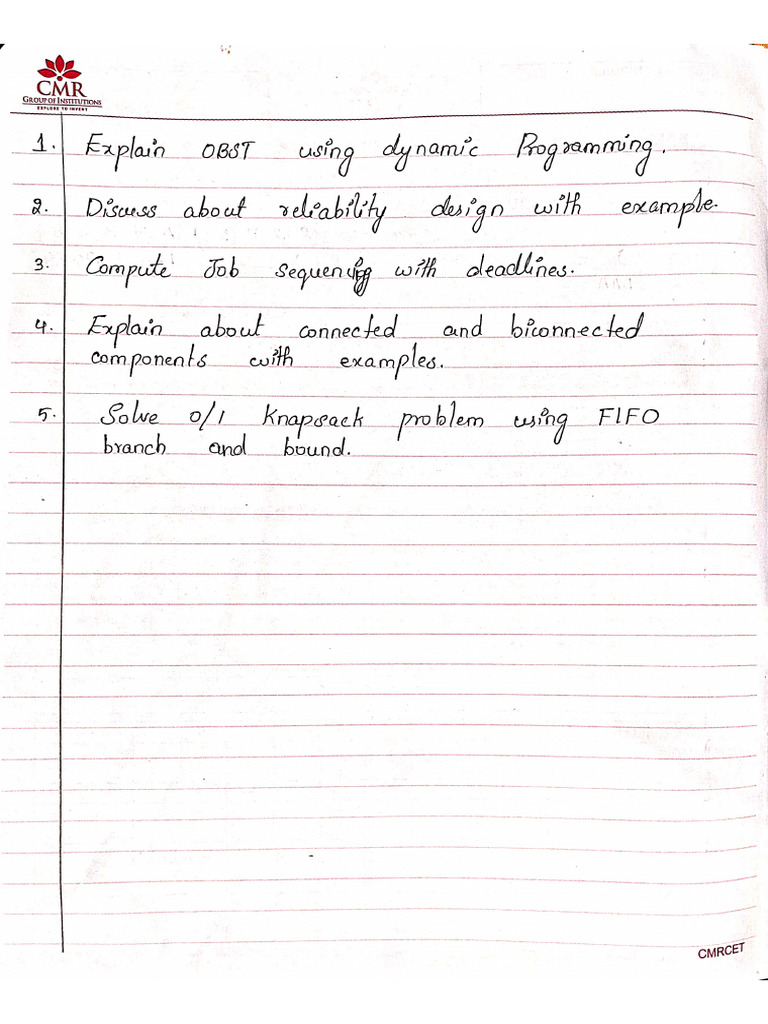 CMR
GROUP OF INSTITUTIONS
EXPLORE TO INVENT
1. Explain OBST using dynamic Programming.
2. Discuss about reliability design with example.
3. Compute Job sequencing with deadlines.
4. Explain about connected and biconnected
components with examples.
5. Solve 0/1 Knapsack problem using FIFO
branch and bound.
CMRCET